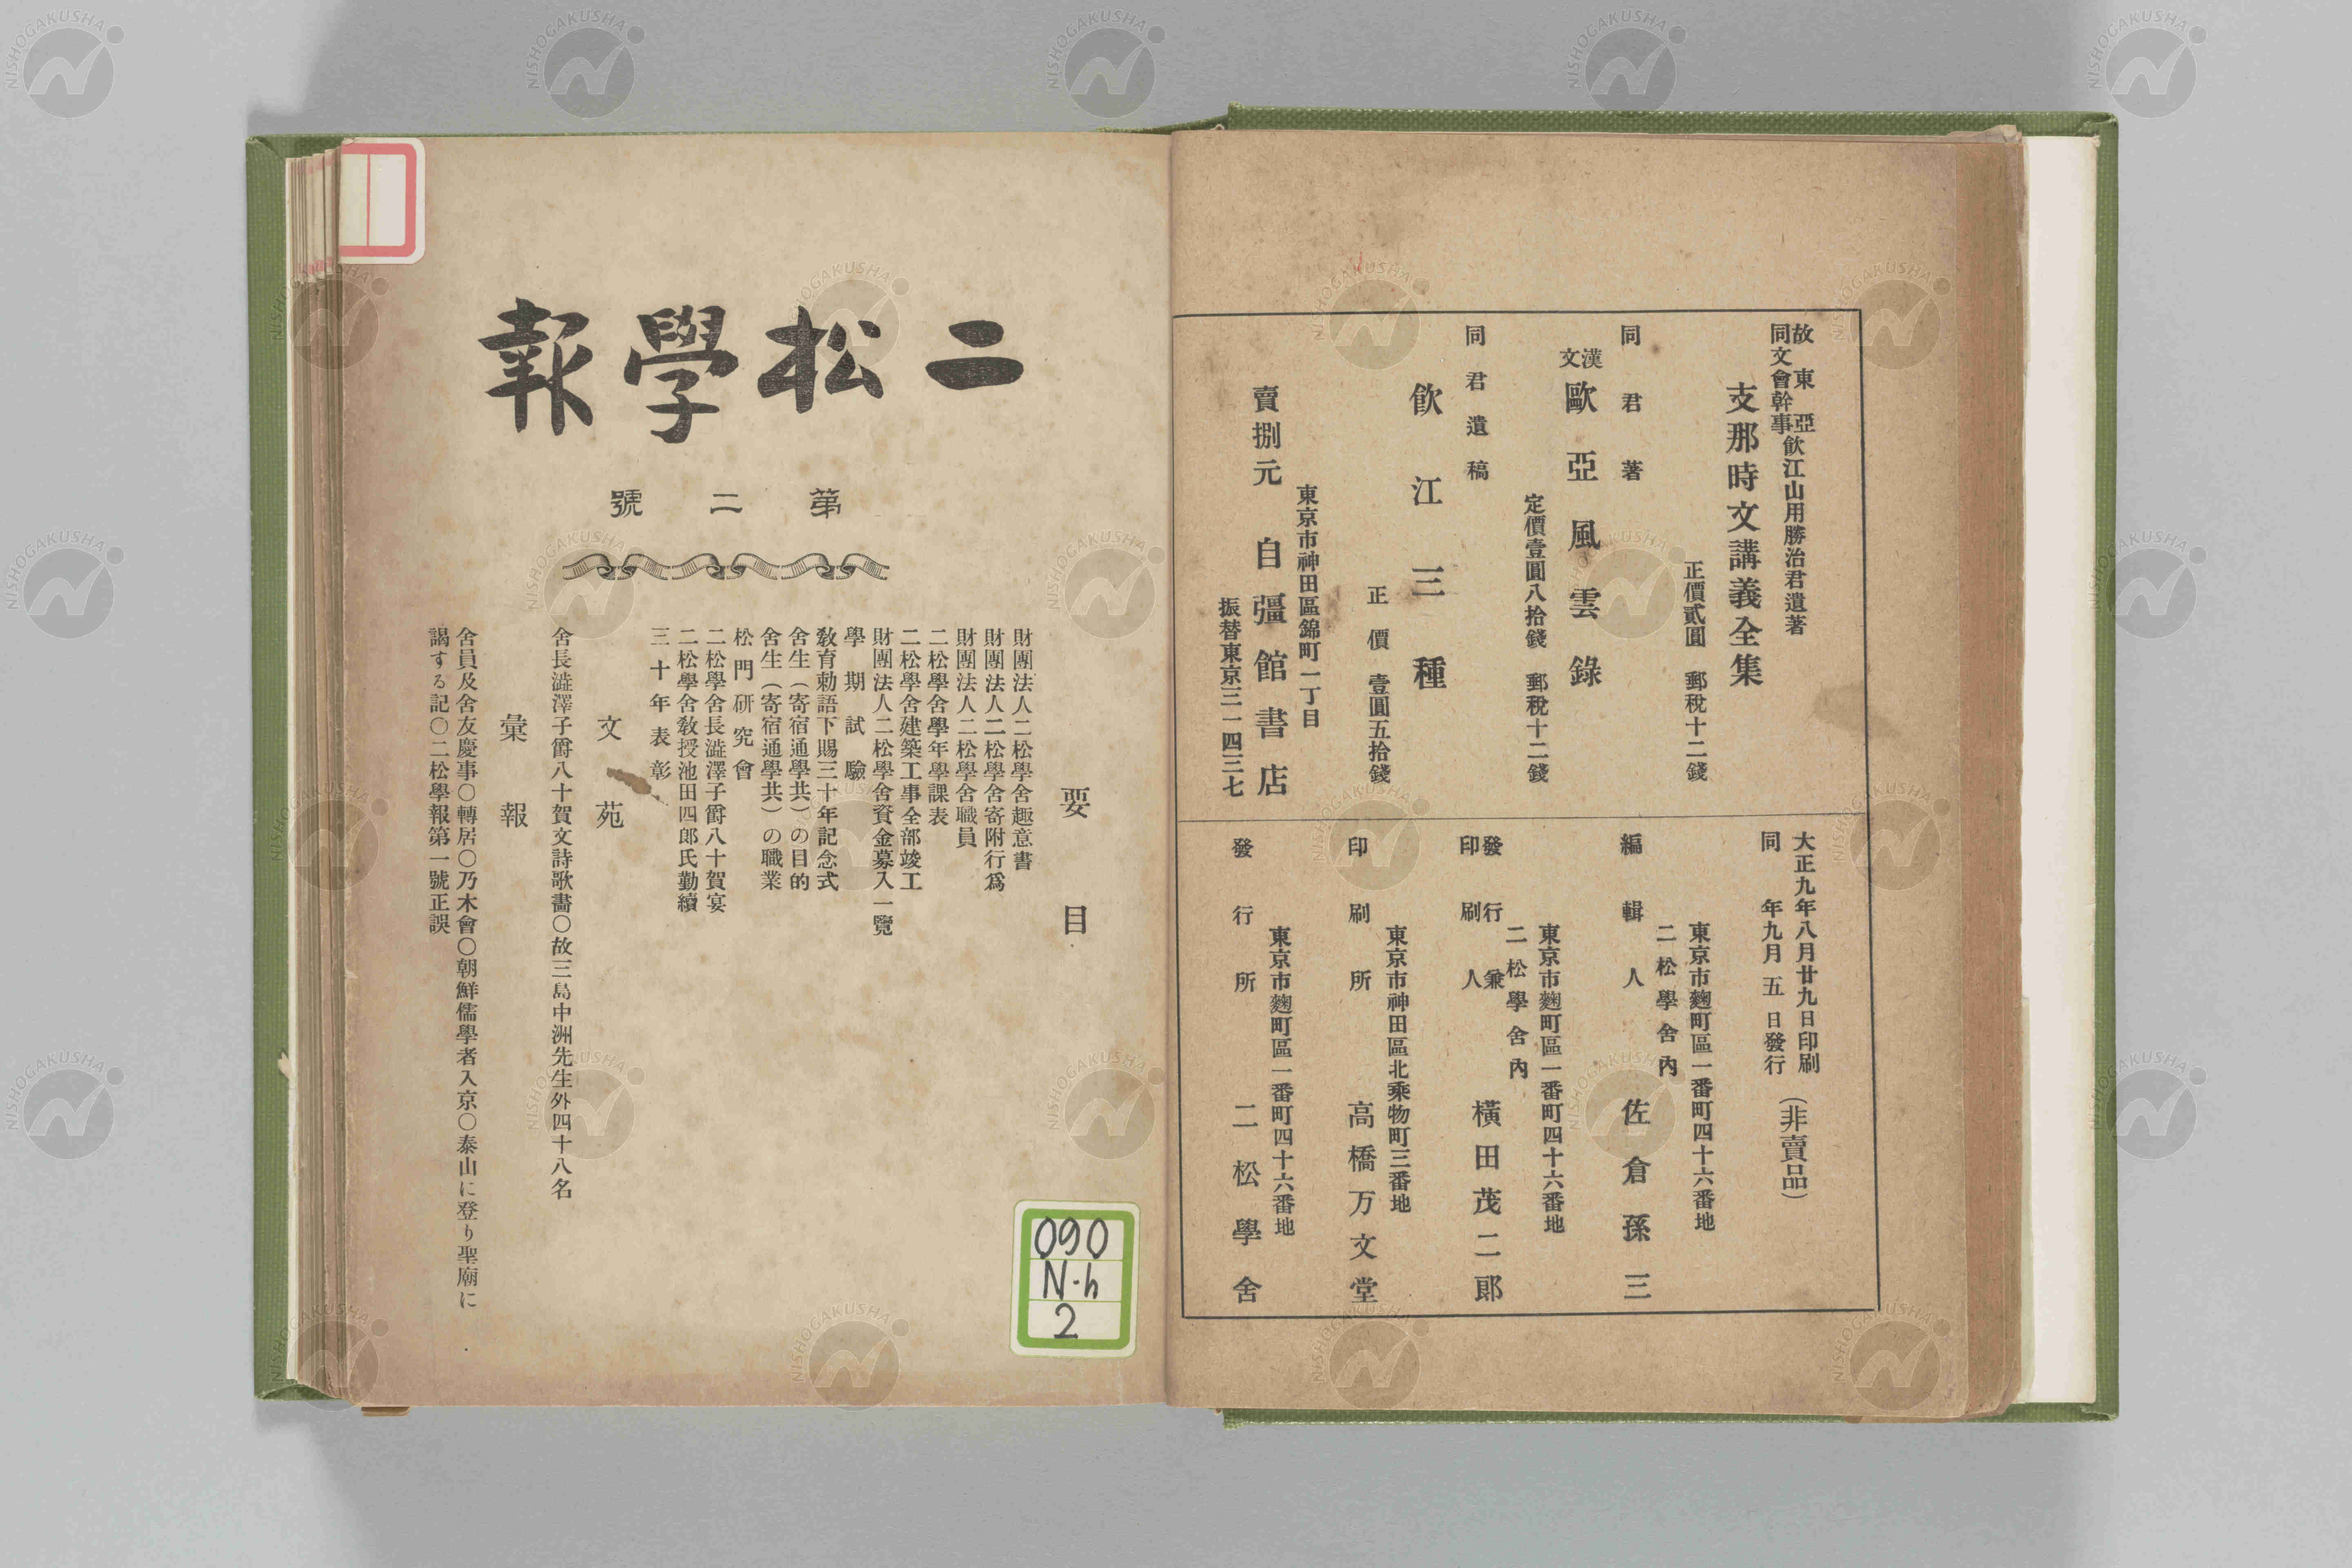 故東亞同文會幹事飮江山用勝治君遺著
支那時文講義全集
正價貳圓　郵稅十二錢
同君著
漢文歐亞風雲錄
定價壹圓八拾錢　郵稅十二錢
同君遺稿
飮江三種
正價　壹圓五拾錢
東京市神田區錦町一丁目
賣捌元　自彊館書店
振替東京三一四三七
大正九年八月廿九日印刷
同　年九月五日發行
（非賣品）
東京市麴町區一番町四十六番地
二松學舍內
編輯人　佐倉孫三
東京市麴町區一番町四十六番地
二松學舍內
發行兼印刷人　橫田茂二郞
東京市神田區北乘物町三番地
印刷所　高橋万文堂
東京市麴町區一番町四十六番地
發行所　二松學舍
二松學報
第二號
要目
財團法人二松學舍趣意書
財團法人二松學舍寄附行爲
財團法人二松學舍職員
二松學舍學年學課表
二松學舍建築工事全部竣工
財團法人二松學舍資金募入一覽
學期試驗
敎育勅語下賜三十年記念式
舍生（寄宿通學共）の目的
舍生（寄宿通學共）の職業
松門硏究會
二松學舍長澁澤子爵八十賀宴
二松學舍敎授池田四郞氏勤續
三十年表彰
文苑
舍長澁澤子爵八十賀文詩歌畵〇故三島中洲先生外四十八名
彙報
舍員及舍友慶事〇轉居〇乃木會〇朝鮮儒學者入京〇泰山に登り聖廟に
謁する記〇二松學報第一號正誤
090
N-h
2
NISHOGAKUSHA